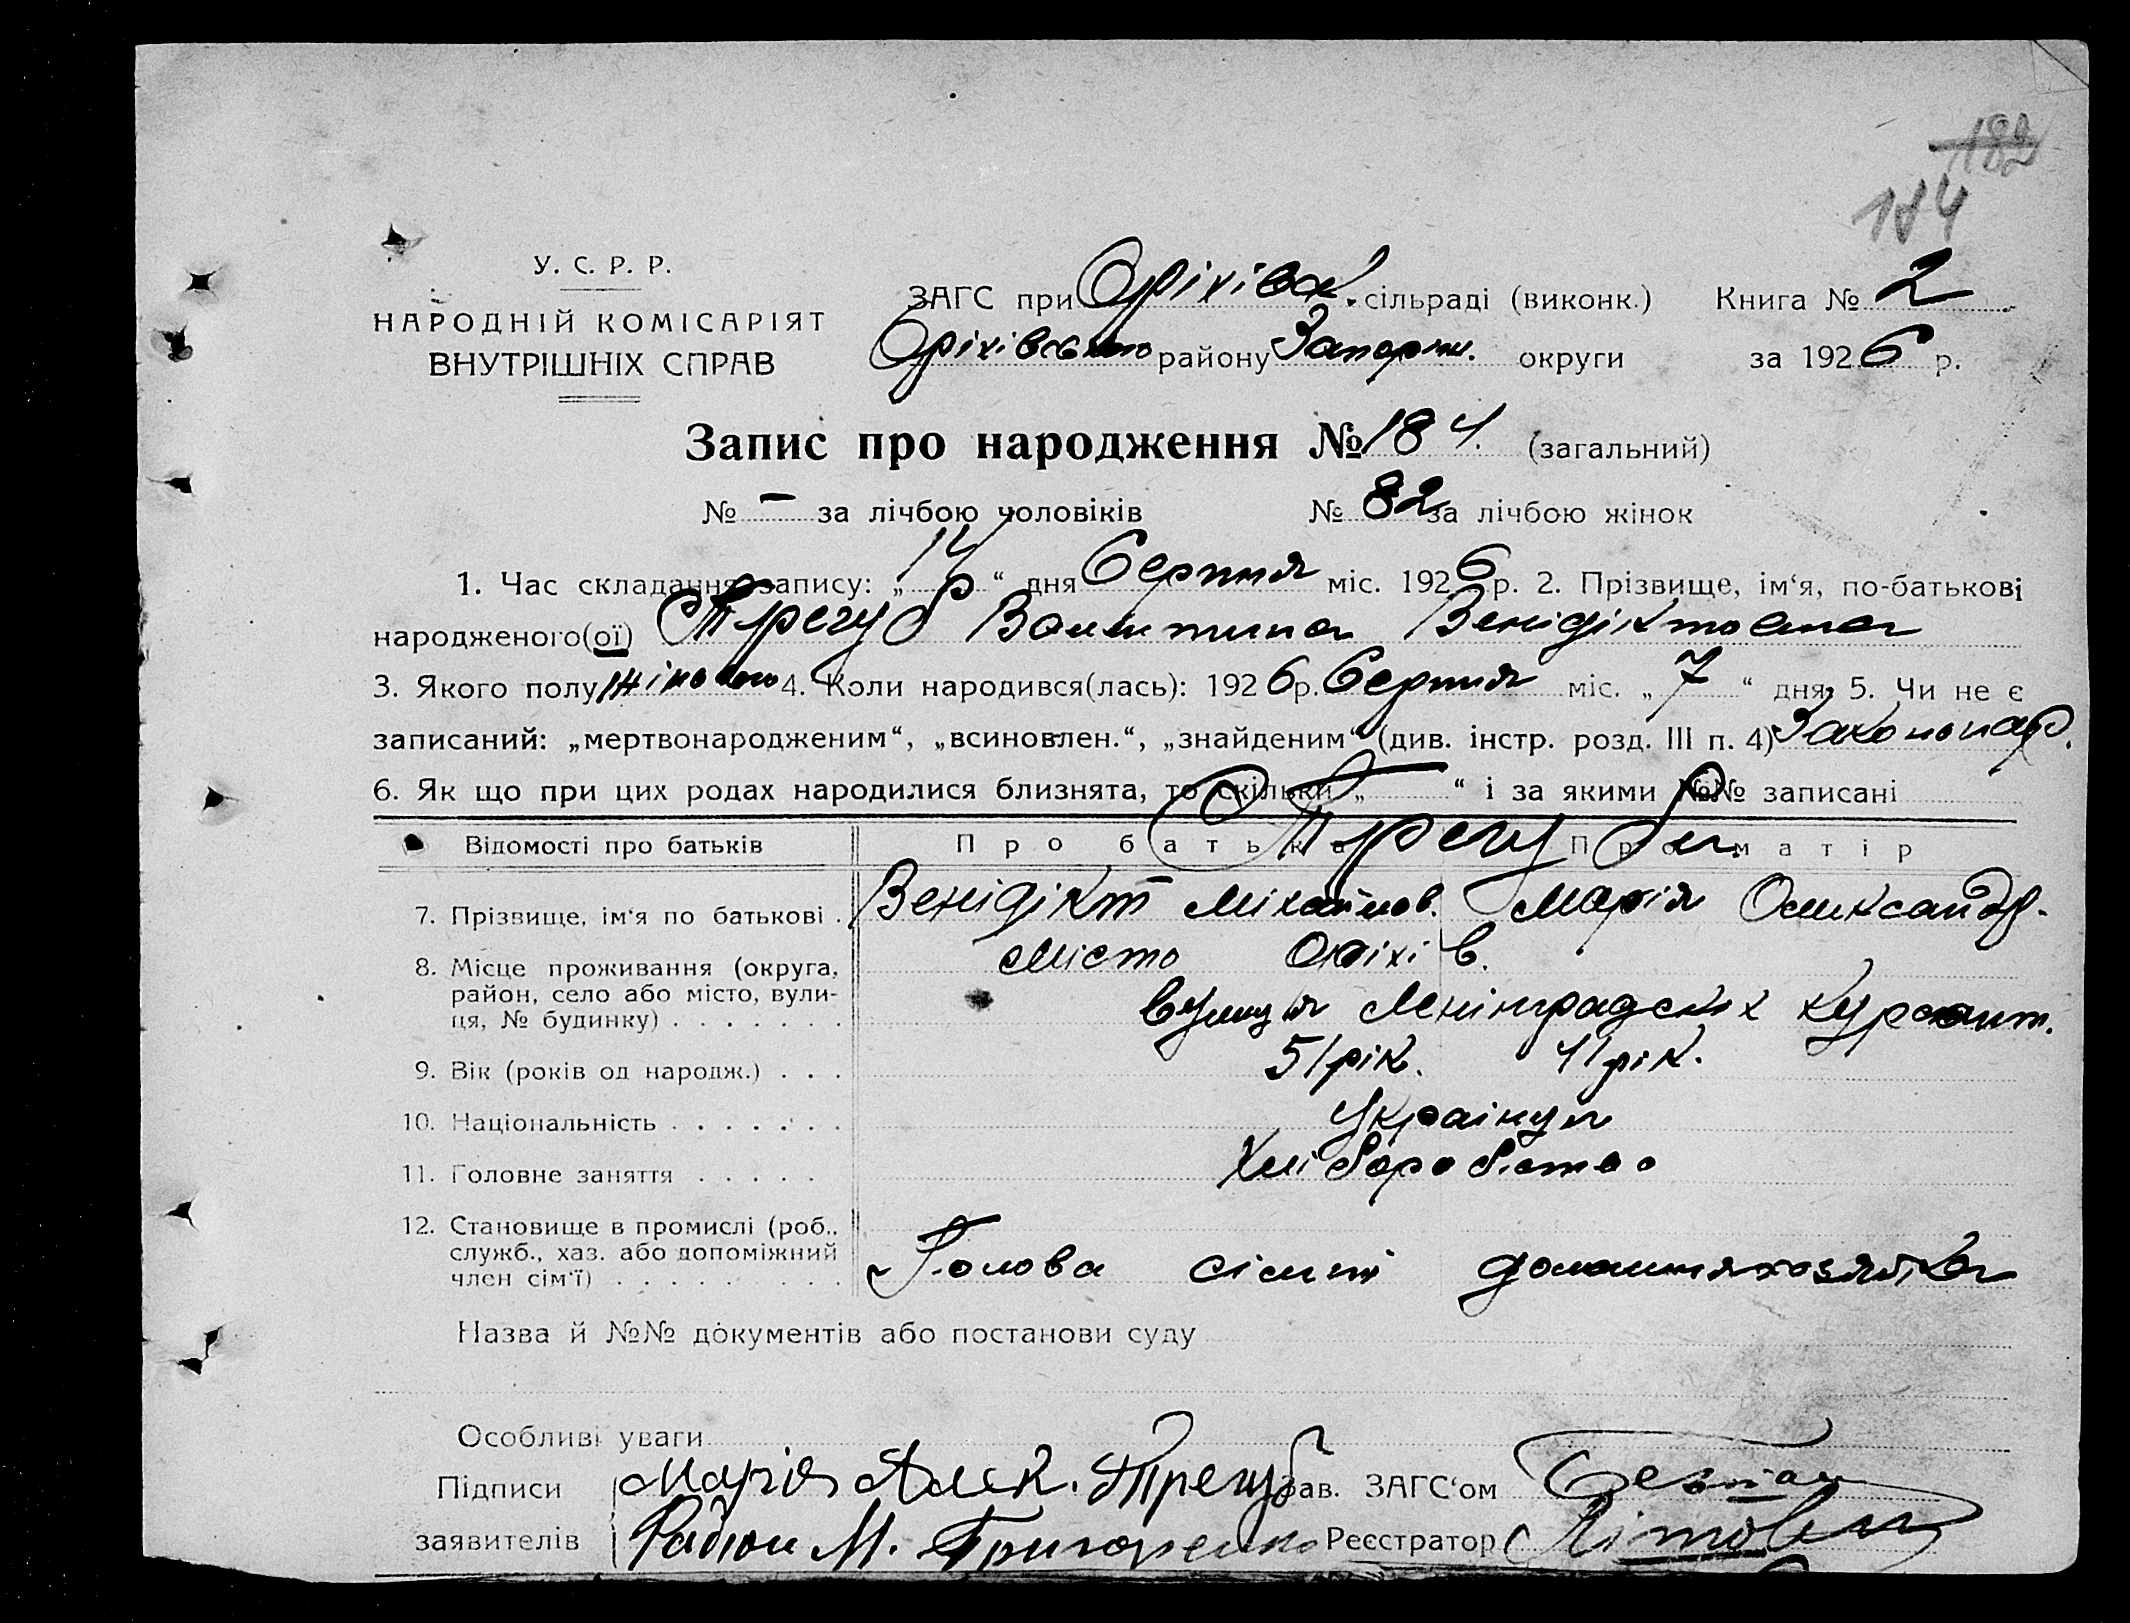 182
184
У. С. Р. Р.
НАРОДНІЙ КОМІСАРІЯТ
ВНУТРІШНІХ СПРАВ
ЗАГС при Оріхівск. сільраді (виконк.) Книга № 2
Оріхівського району Запоріж. округи за 1926 р.
Запис про народження № 184. (загальний)
№ – за лічбою чоловіків № 82 за лічбою жінок
1. Час складання запису: „14“ дня Серпня міс. 1926 р. 2. Прізвище, ім'я, по-батькові
народженого(ої) Трегуб Валентина Венідіктовна
3. Якого полу жіночого 4. Коли народився(лась): 1926 р. Серпня міс. „7“ дня, 5. Чи не є
записаний: „мертвонародженим“, „всиновлен.“, „знайденим“ (див. інстр. розд. III п. 4) Законнар.
6. Як що при цих родах народилися близнята, то скільки „ “ і за якими №№ записані
Відомості про батьків Про батька Про матір
Трегуби
7. Прізвище, ім'я по батькові . Венідікт Міхайлов. Марія Олександр.
8. Місце проживання (округа, Місто Оріхів.
район, село або місто, вули-
ця, № будинку) . . . . . . . вулиця Ленінградських курсант.
9. Вік (років од народж.) . . . 51 рік. 41 рік.
10. Національність . . . . . . . Українці
11. Головне заняття . . . . . Хліборобство
12. Становище в промислі (роб.,
служб., хаз. або допоміжний Голова сімт домашня хозяйка
член сім'ї) . . . . . . . . .
Назва й №№ документів або постанови суду
Особливі уваги
Підписи Марія Алек. Трегуб Зав. ЗАГС'ом
заявителів Радіон М. Григоренко Реєстратор